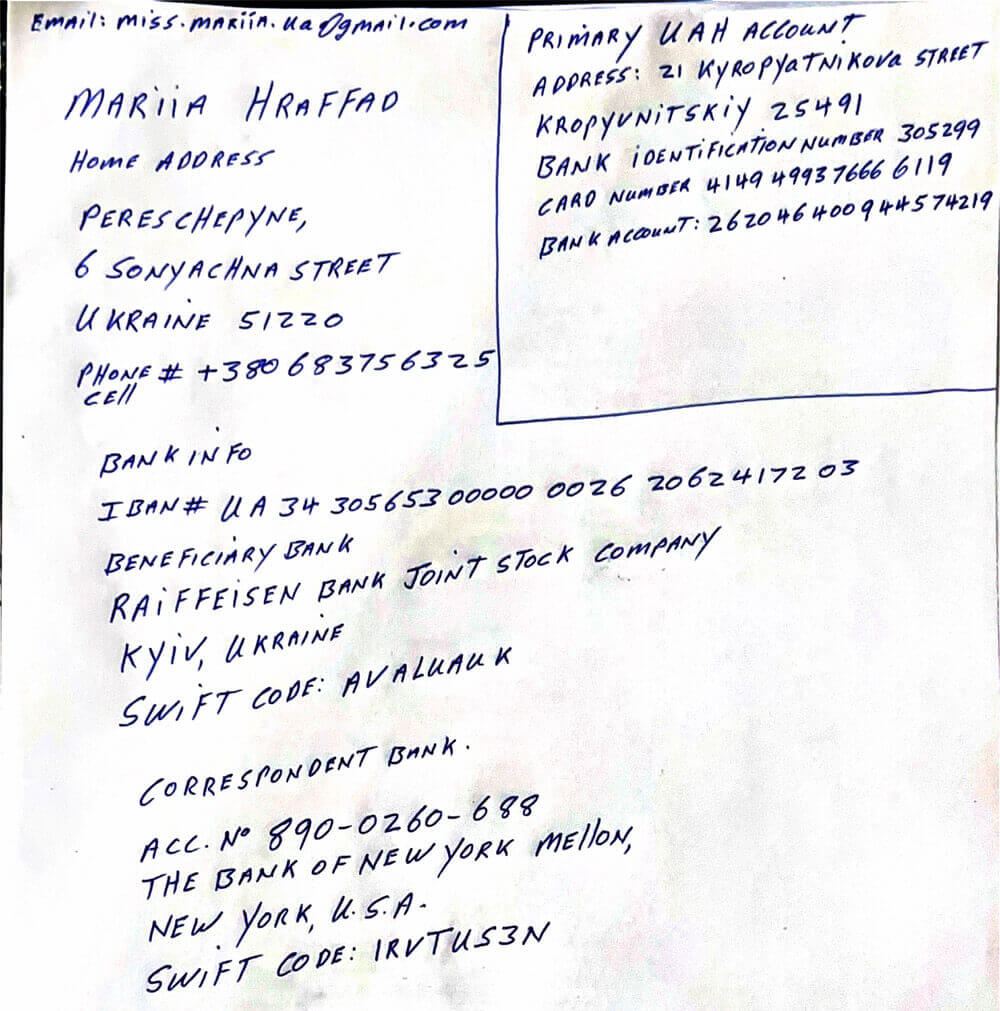 Email: miss.mariia.ua@gmail.com
MARIIA HRAFFAD
HOME ADDRESS
PERESCHEPYNE,
6 SONYACHNA STREET
UKRAINE 51220
PHONE # +380 683756325
CELL
PRIMARY UAH ACCOUNT
ADDRESS: 21 KYROPYATNIKOVA STREET
KROPYVNITSKIY 25491
BANK IDENTIFICATION NUMBER 305299
CARD NUMBER 4149 4993 7666 6119
BANK ACCOUNT: 26204640094457 4219
BANK INFO
IBAN# UA 34 305653 00000 0026 2062417203
BENEFICIARY BANK
RAIFFEISEN BANK JOINT STOCK COMPANY
KYIV, UKRAINE
SWIFT CODE: AVALUAUK
CORRESPONDENT BANK.
ACC. Nº 890-0260-688
THE BANK OF NEW YORK MELLON,
NEW YORK, U.S.A.
SWIFT CODE: IRVTUS3N